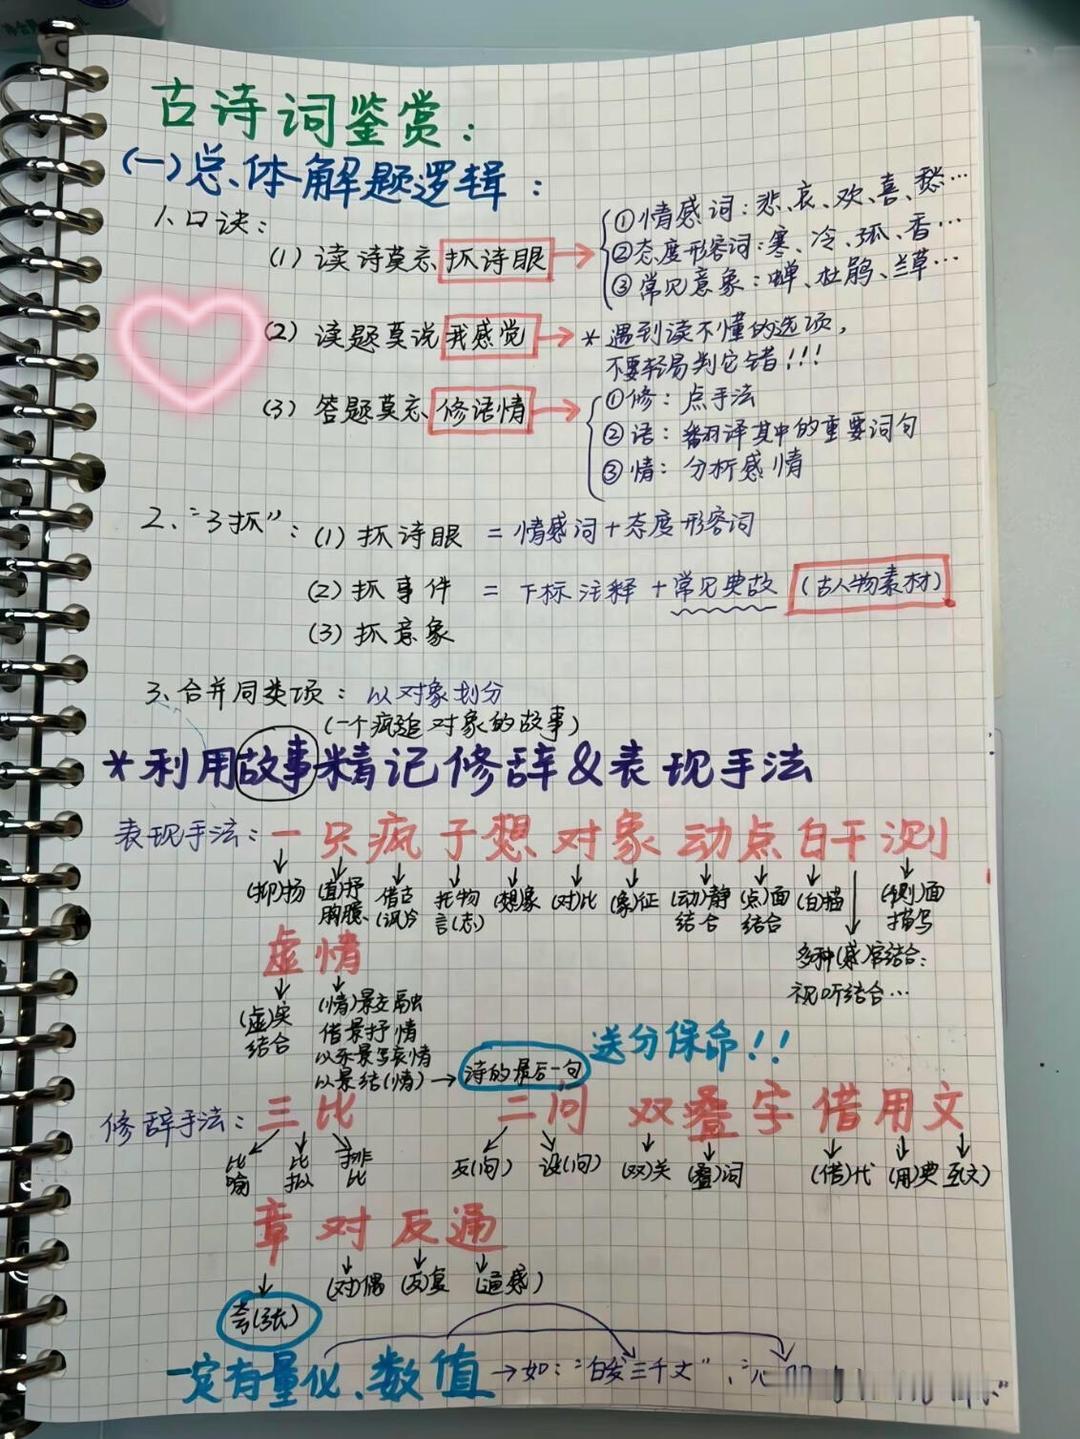 古诗词鉴赏：
(一)总体解题逻辑：
1、口诀：
(1) 读诗莫忘 抓诗眼 →
①情感词：悲、哀、欢、喜、愁…
②态度形容词：寒、冷、孤、香…
③常见意象：蝉、杜鹃、兰草…
(2) 读题莫说 我感觉 → * 遇到读不懂的选项，
不要轻易判它错!!!
(3) 答题莫忘 修语情 →
①修：点手法
②语：翻译其中的重要词句
③情：分析感情
2、“3抓”：(1) 抓诗眼 = 情感词+态度形容词
(2) 抓事件 = 下标注释+常见典故 (古人物素材)
(3) 抓意象
3、合并同类项：以对象划分
(一个疯追对象的故事)
*利用故事精记修辞&表现手法
表现手法：一只疯子想对象动点白干测
(抑)扬 (直)抒胸臆 借古(讽)今 托物言(志) (想)象 (对)比 (象)征 (动)静结合 (点)面结合 (白)描 (侧)面描写
多种(感)官结合：
视听结合…
虚情
(虚)实结合
(情)景交融
借景抒情
以乐景写哀情
以景结(情) → 诗的最后一句
送分保命!!
修辞手法：三比 二问 双叠字 借用文
比喻 比拟 排比 反(问) 设(问) (双)关 (叠)词 (借)代 (用)典 互(文)
章对反通
夸(张) (对)偶 (反)复 (通感)
一定有量化、数值 → 如：“白发三千丈”、